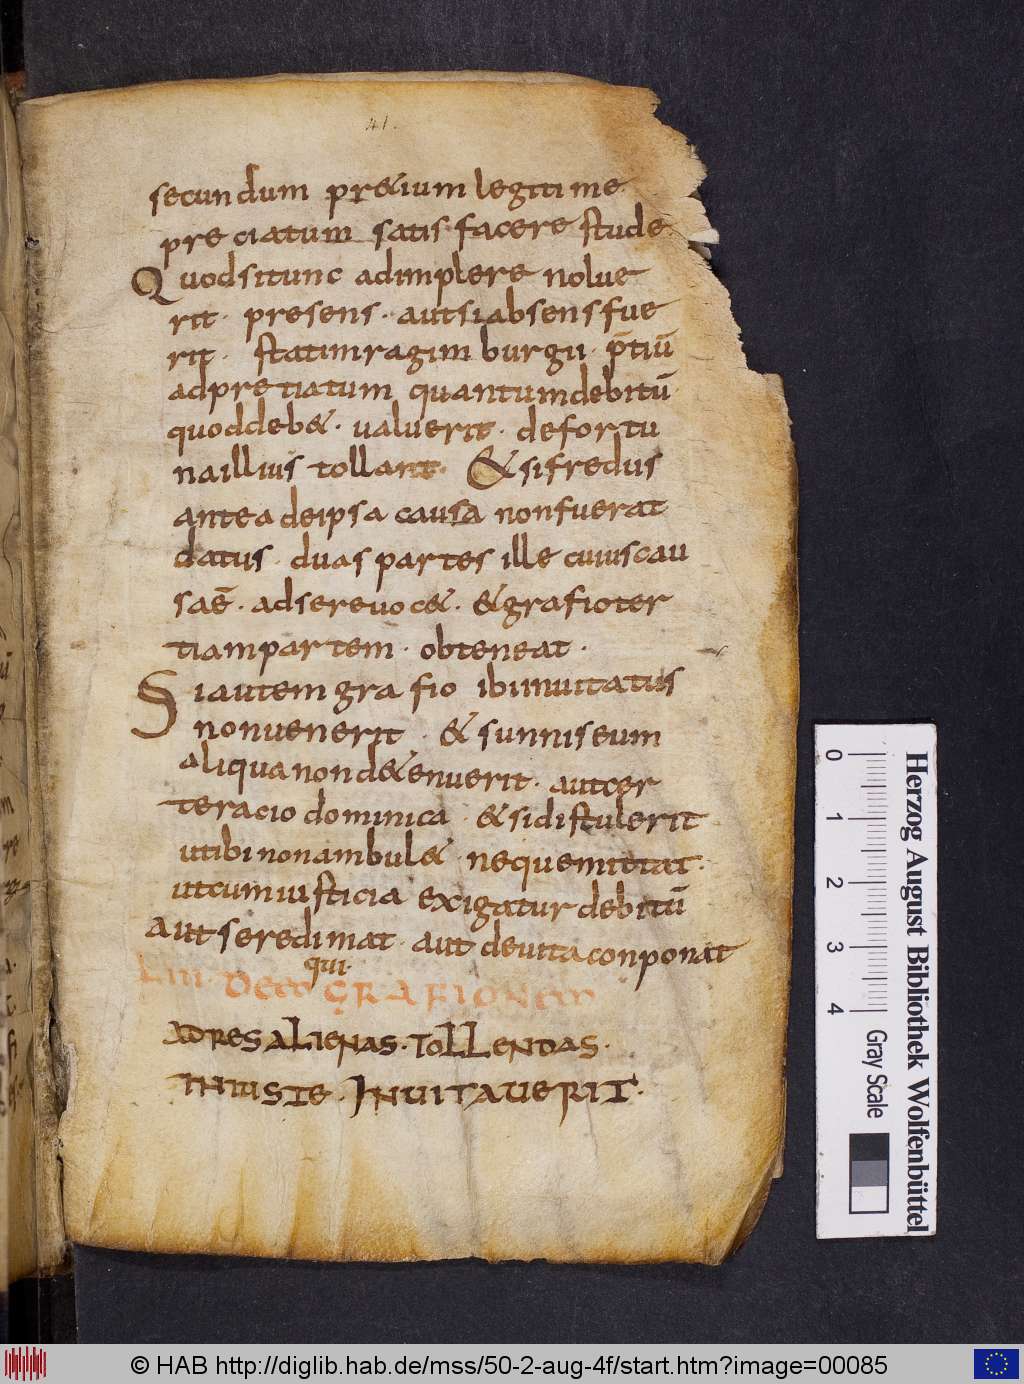 41.
secundum pr&ium legitime
preciatum satisfacere stude
Quodsitunc adimplere nolue
rit · presens · autsiabsensfue
rit · statimragimburgii · p̄tiū
adpretiatum quantumdebitū
quoddeb& · valuerit · defortu
naillius tollant · &sifredus
antea deipsa causa nonfuerat
datus · duas partes ille cuiuscau
saē · adserevoc& · &grafioter
tiampartem · obteneat ·
Siautem grafio ibiinvitatus
nonvenerit · & sunniseum
aliquanond&enuerit · autcer
teracio dominica · &sidistulerit
utibinonambul& · nequemittat ·
utcumiusticia exigatur debitū
Aut seredimat · aut devitaconponat
qui
LIII DeeO GRAFIONem
ADRES ALIENAS · TOLLENDAS ·
INIUSTE · INVITAVERIT ·
Herzog August Bibliothek Wolfenbüttel
0 1 2 3 4 Gray Scale
© HAB http://diglib.hab.de/mss/50-2-aug-4f/start.htm?image=00085